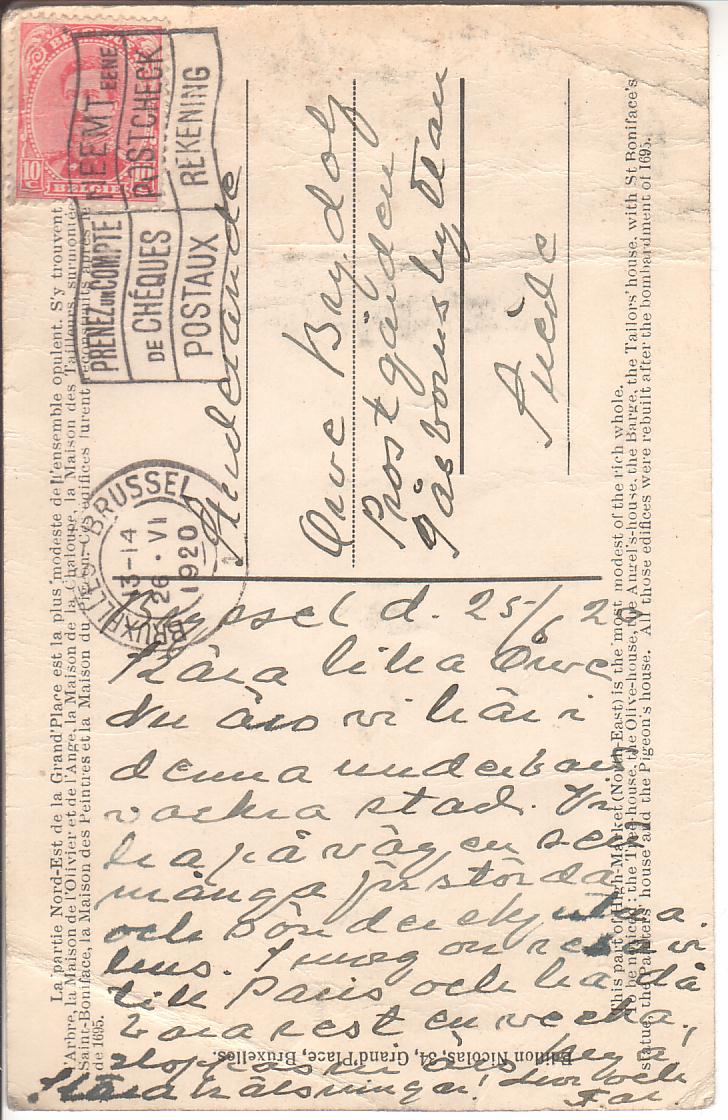 BELGIE
10
NEEMT EENE
POSTCHECK
REKENING
PRENEZ UN COMPTE
DE CHÈQUES
POSTAUX
BRUXELLES BRUSSEL
13-14
26·VI
1920
Orvc Brydolf
Postgården
Suède
La partie Nord-Est de la Grand'Place est la plus modeste de l'ensemble opulent. S'y trouvent
l'Arbre, la Maison de l'Olivier et de l'Ange, la Maison de la Chaloupe, la Maison des Tailleurs, surmontée
Saint-Boniface, la Maison des Peintres et la Maison du Pigeon. Ces édifices furent reconstruits après le
de 1695.
Bryssel d. 25/6 20
Kära lilla Orvc
Nu äro vi här i
denna underbart
vackra stad. Vi
ha på vägen sett
många förstörda
och sönderskjutna
hus. I morgon resa vi
till Paris och ha då
bara rest en vecka,
Kära hälsningar! Mor och
Far.
This part of High-Market (North-East) is the most modest of the rich whole.
To be noticed: the Tree-house, the Olive-house, the Angel's-house, the Barge, the Tailors' house, with St Boniface's
statue, the Painters' house and the Pigeon's house. All those edifices were rebuilt after the bombardment of 1695.
Edition Nicolas, 34, Grand'Place, Bruxelles.